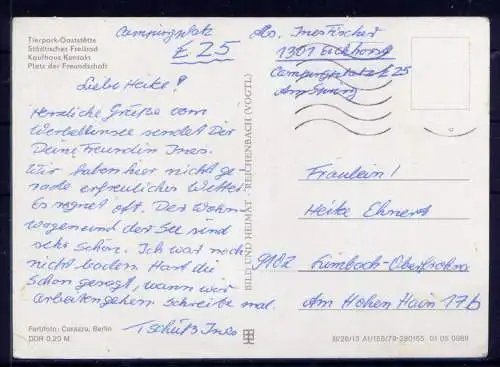 Tierpark-Gaststätte
Städtisches Freibad
Kaufhaus Kontakt
Platz der Freundschaft
Campingplatz
E 25
Abs. Ines Fischer
1301 Eichhorst
Campingplatz E 25
Am
Liebe Heike!
Herzliche Grüße vom
Werbellinsee sendet Dir
Deine Freundin Ines.
Wir haben hier nicht ge-
rade erfreuliches Wetter.
Es regnet oft. Der Wohn-
wagen und der See sind
sehr schön. Ich war noch
nicht baden. Hast du
schon gesagt, wann wir
arbeiten gehen schreibe mal.
Tschüß Ines
Fräulein!
Heike Ehnert
9102 Limbach-Oberfrohna
Am Hohen Hain 17b
BILD UND HEIMAT · REICHENBACH (VOGTL)
Farbfoto: Corazza, Berlin
DDR 0,20 M
B/26/13 A1/155/79-280155 01 05 0068